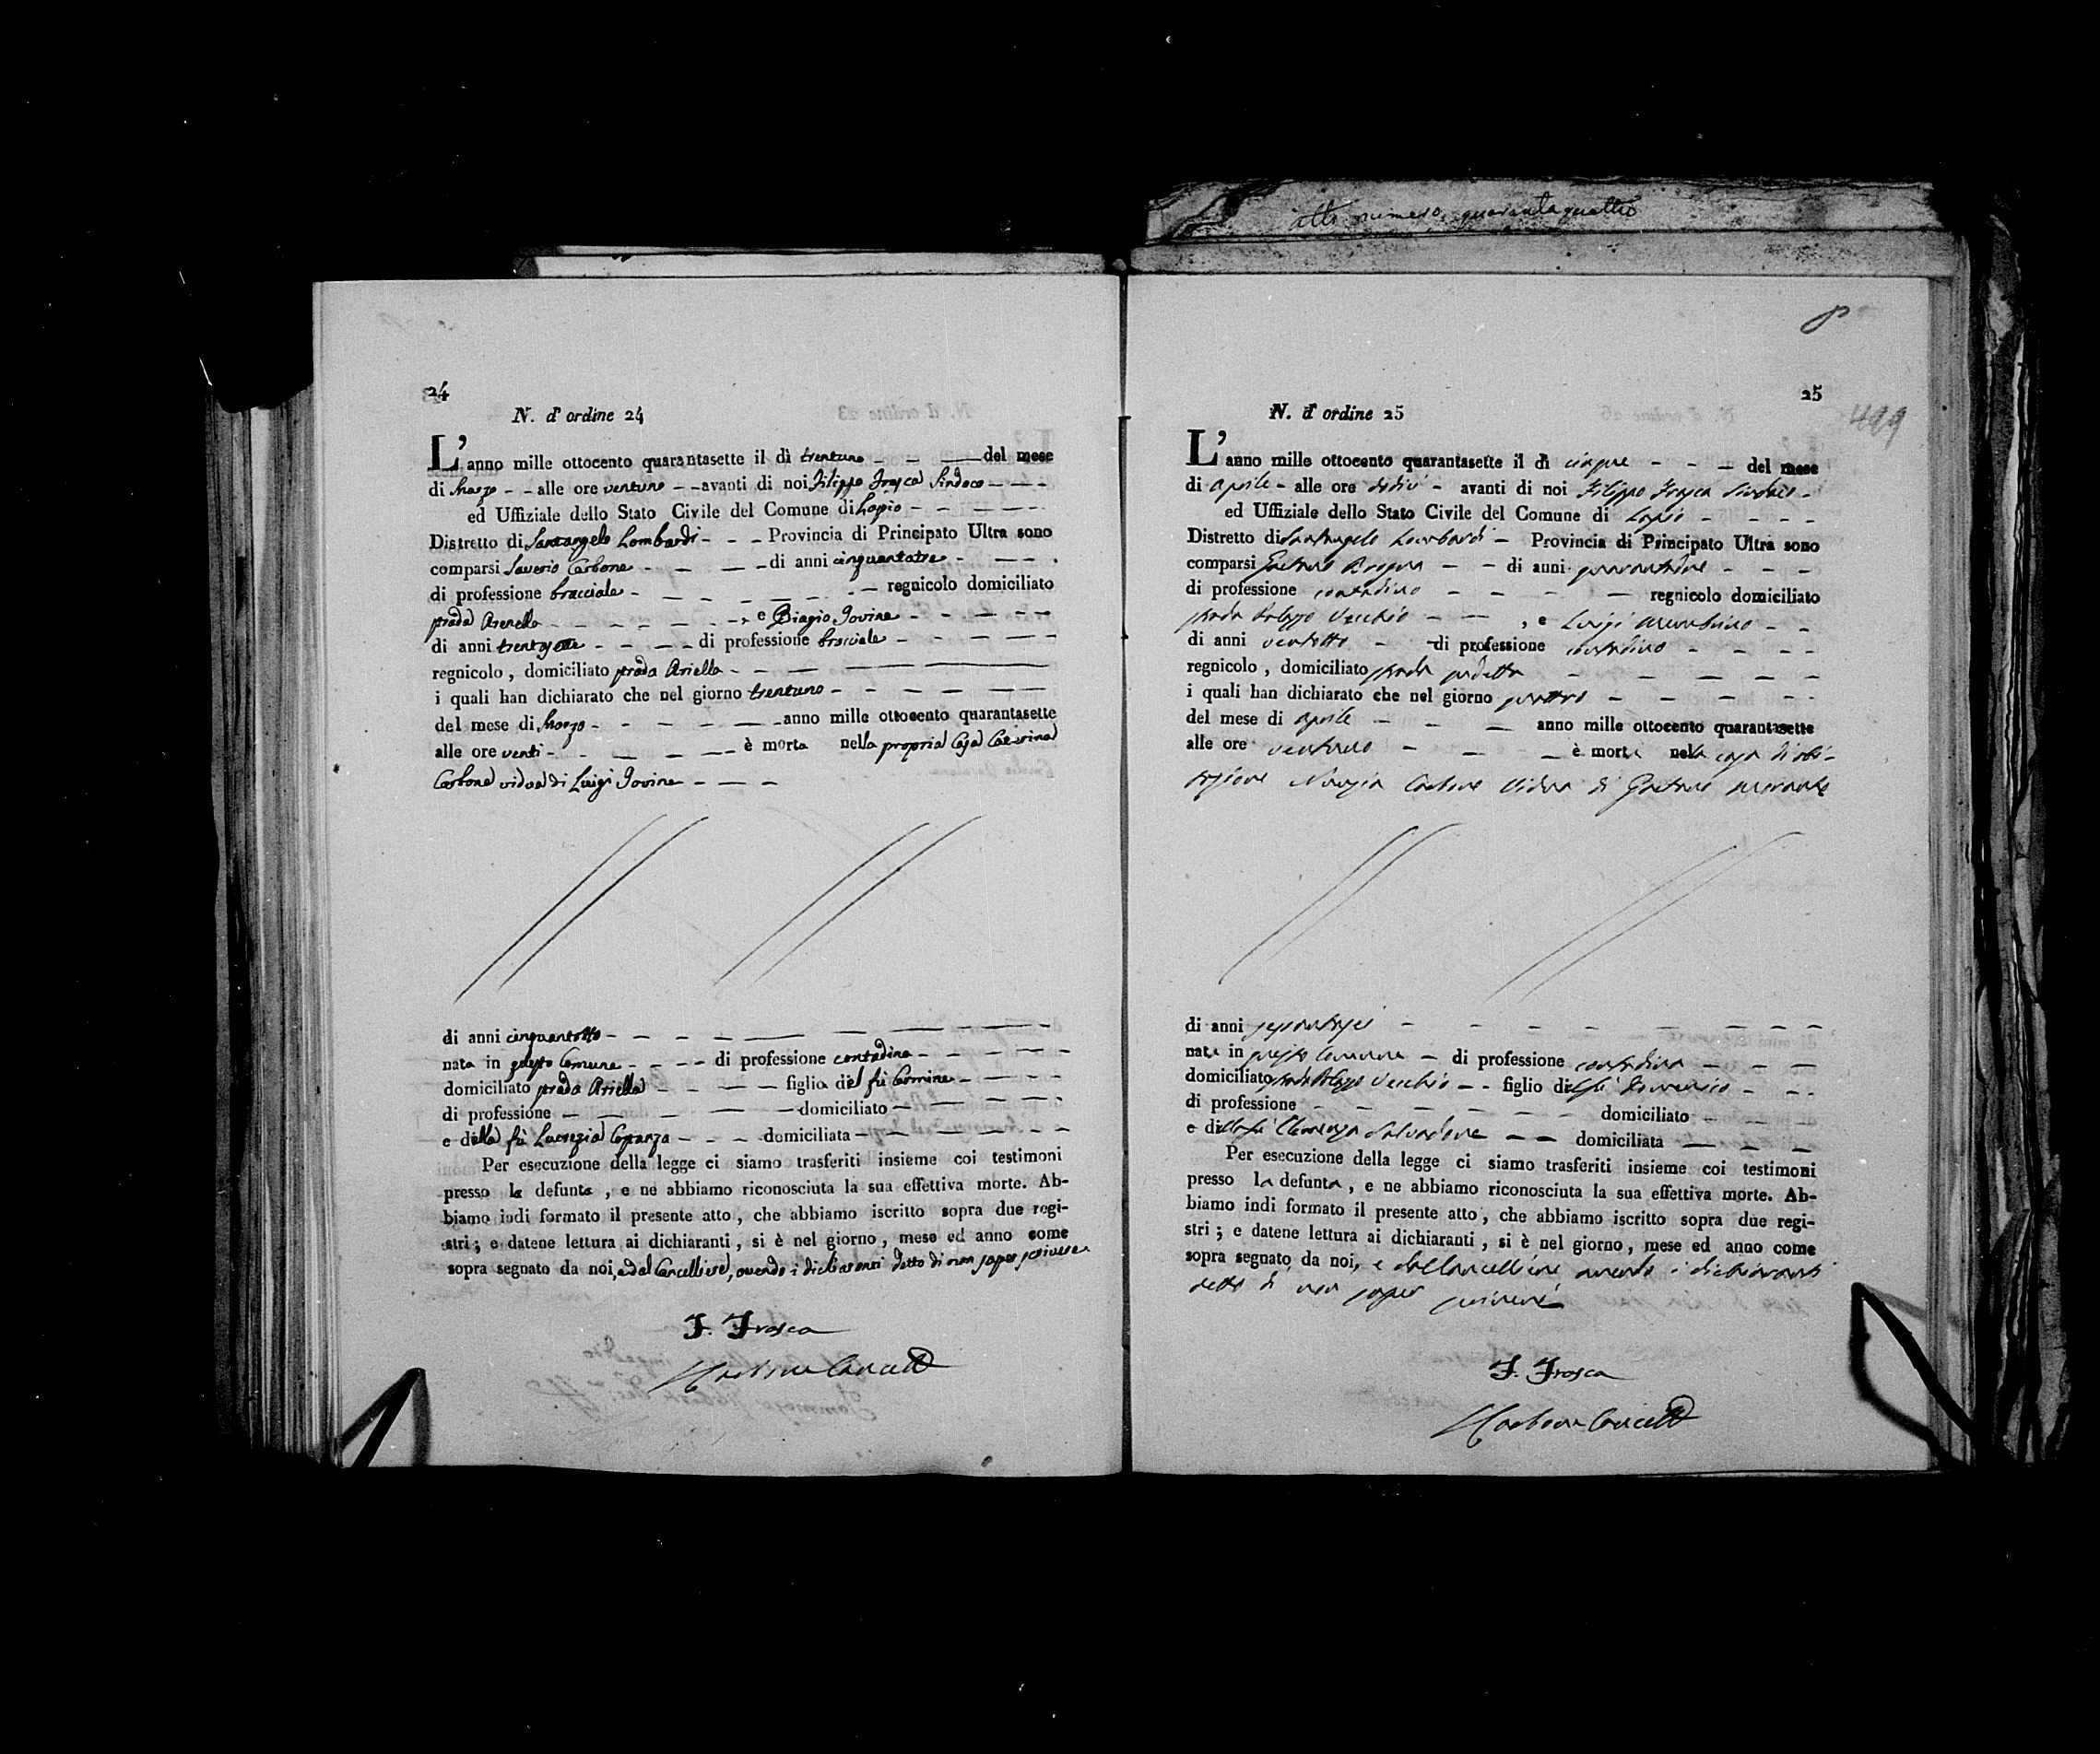 atto numero quarantaquattro
24
N. d' ordine 24
L'anno mille ottocento quarantasette il dì trentuno - - — del mese
di Marzo - - alle ore ventuno - - avanti di noi Filippo Frasca Sindaco - - -
ed Uffiziale dello Stato Civile del Comune di Lapio - - - - -
Distretto di Santangelo Lombardi - - - Provincia di Principato Ultra sono
comparsi Saverio Carbone - - - - di anni cinquantatre - - - .
di professione bracciale - - - - - - - regnicolo domiciliato
strada - - - - - - , e Biagio Iovine - - - - -
di anni trentasette - - - - di professione bracciale - - - - -
regnicolo, domiciliato strada Ariella - - — ——
i quali han dichiarato che nel giorno trentuno - - - - - -
del mese di Marzo - - - - - - anno mille ottocento quarantasette
alle ore venti - - - - - - è morta nella propria casa
Carbone vidua di Luigi Iovine - - - -
di anni cinquantotto - - - - — — — — -
nata in questo Comune - - - - di professione contadina - - - - -
domiciliato strada Ariella - - - - figlia del fù Carmine - - - - -
di professione - - - - - - domiciliato - - - - -
e della fù Lucrezia Costanza - - - domiciliata - - - - - -
Per esecuzione della legge ci siamo trasferiti insieme coi testimoni
presso la defunta, e ne abbiamo riconosciuta la sua effettiva morte. Ab-
biamo indi formato il presente atto, che abbiamo iscritto sopra due regi-
stri; e datene lettura ai dichiaranti, si è nel giorno, mese ed anno come
sopra segnato da noi, e dal Cancelliere, avendo i dichiaranti detto di non saper scrivere
F. Frasca
Carbone Cancell
25
499
N. d' ordine 25
L'anno mille ottocento quarantasette il dì cinque - - - del mese
di Aprile - alle ore dodici - avanti di noi Filippo Frasca Sindaco -
ed Uffiziale dello Stato Civile del Comune di Lapio - - - -
Distretto di Santangelo Lombardi - Provincia di Principato Ultra sono
comparsi Gaetano - - di anni - - -
di professione contadino - - - - - regnicolo domiciliato
strada Palazzo Vecchio - - - , e Luigi - -
di anni ventotto - - di professione contadino - - - -
regnicolo, domiciliato strada sudetta - - - - -
i quali han dichiarato che nel giorno quattro - - - - - -
del mese di Aprile - - - anno mille ottocento quarantasette
alle ore ventuno - - - è morta nella casa di abi-
tazione Nunzia Carbone vidua di Gaetano
di anni sessantasei - - - - - - - -
nata in questo Comune - di professione contadina - - -
domiciliato strada Palazzo Vecchio - - figlio del fù Domenico - - -
di professione - - - - - - - domiciliato - - -
e della fù Salvadore - - domiciliata - - -
Per esecuzione della legge ci siamo trasferiti insieme coi testimoni
presso la defunta, e ne abbiamo riconosciuta la sua effettiva morte. Ab-
biamo indi formato il presente atto, che abbiamo iscritto sopra due regi-
stri; e datene lettura ai dichiaranti, si è nel giorno, mese ed anno come
sopra segnato da noi, e dal Cancelliere avendo i dichiaranti
detto di non saper scrivere
F. Frasca
Carbone Cancell